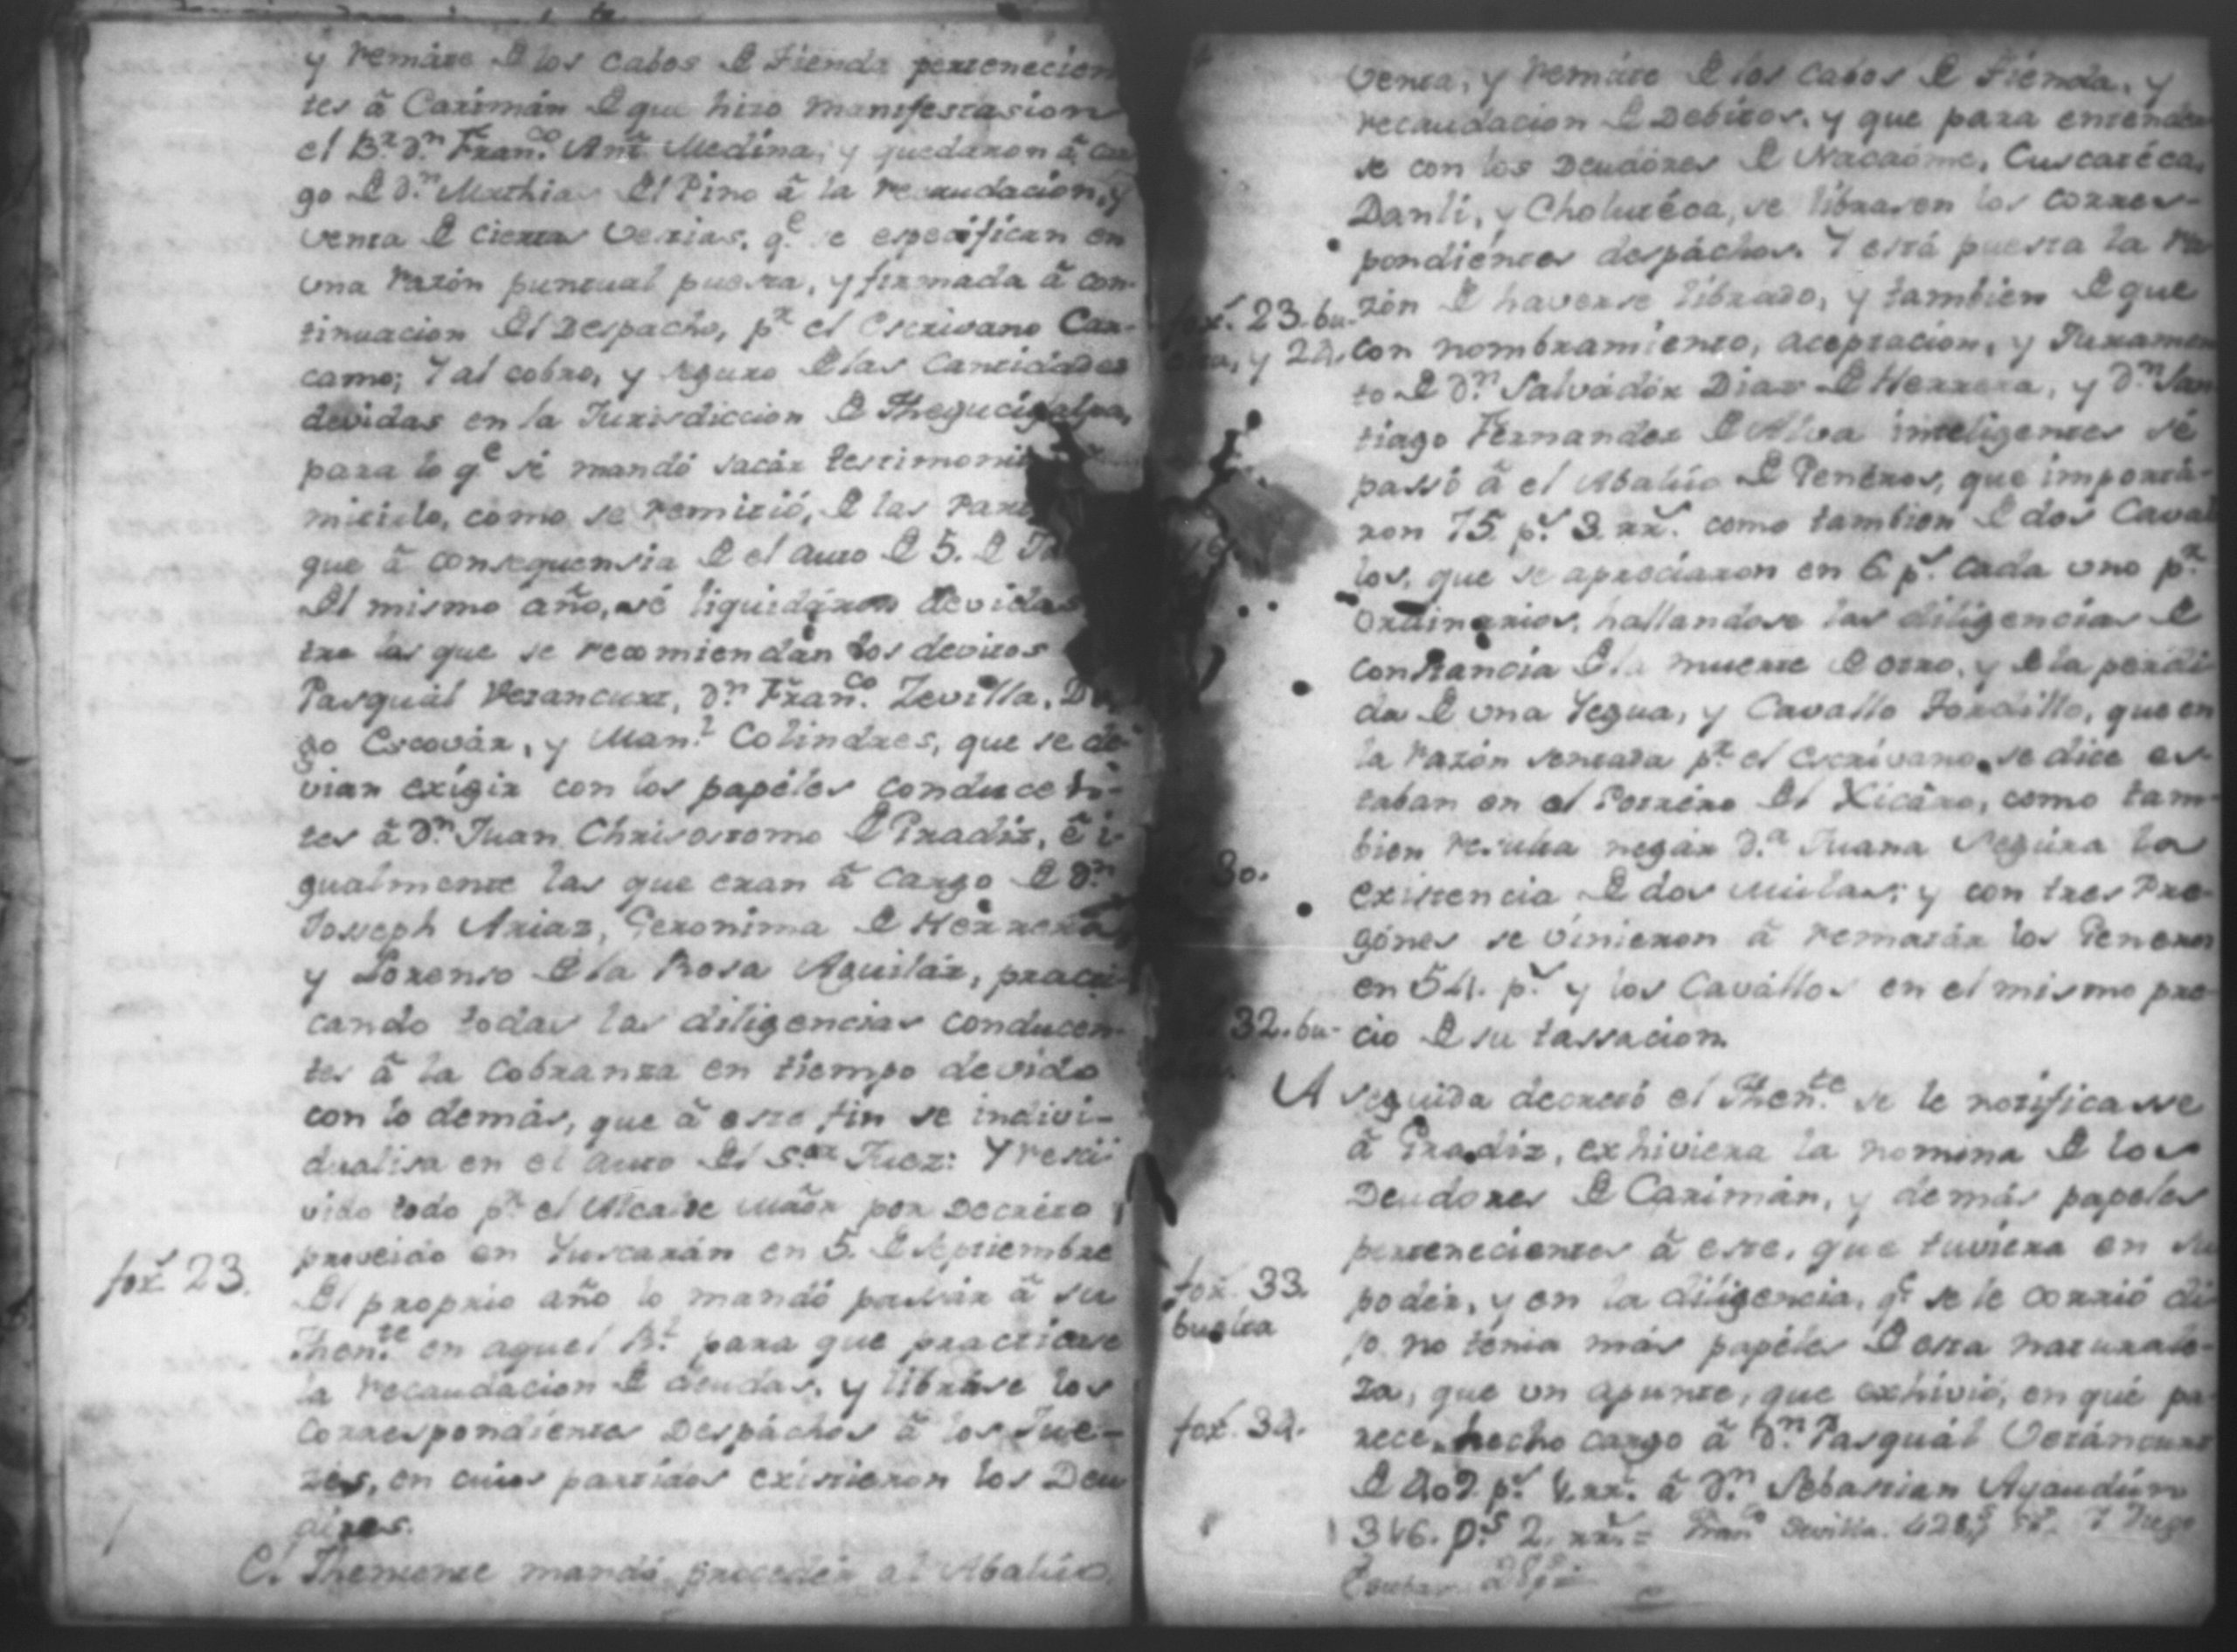 y remáte de los cabos de tienda pertenecien
tes â Carimán de que hizo manifestasion
el Br. dn. Franco. Antt. Medina, y quedaron â car
go de dn. Mathias del Pino â la recaudacion, y
venta de ciertas verias, qe. se especifican en
una razón puntual puesta, y firmada â con-
tinuacion del Despacho, pr. el Escrivano Car-
camo; Y al cobro, y seguro de las Cantidades
devidas en la Jurisdiccion de Thegucigalpa,
para lo qe. sé mandó sacár testimonio
mitirlo, como se remitió, de las
que â consequensia de el auto de 5. de
del mismo año, sé liquidáron devidas
tre las que se recomiendan los devitos
Pasquál Vetancurt, dn. Franco. Zevilla,
go Escovár, y Manl. Colindres, que se de-
vian exígir con los papéles conducen-
tes â dn. Juan Chrisostomo de Pradiz, é i-
gualmente las que eran â cargo de dn.
Joseph Ariaz, Geronima de Herrera,
y Lorenso de la Rosa Aguilár, practi-
cando todas las diligencias conducen-
tes â la cobranza en tiempo devido
con lo demás, que â este fin se indivi-
dualisa en el auto del Sor. Juez: Y resci-
vido todo pr. el Alcalde maor. por Decréto
fox. 23. proveido en Yuscarán en 5. de septiembre
del proprio año lo mandó passár â su
Thente. en aquel Rl. para que practicase
la recaudacion de deudas, y librase los
correspondientes Despáchos â los Jue-
zes, en cuios partidos existieron los Deu
dores.
El Theniente mandó procedér al Abalúo,
venta, y remáte de los cabos de tienda, y
recaudacion de Debitos, y que para entender
se con los Deudóres de Nacaóme, Cuscatéca,
Danlí, y Cholutéca, se librasen los corres-
pondiéntes despáchos. Y está puesta la ra
fox. 23. bu- zón de haverse librado, y tambien de que
elta, y 24. con nombramiento, aceptacion, y Juramen
to de dn. Salvadór Diaz de Herrera, y dn. San
tiago Férnandez de Alva inteligentes sé
passó â el Abalúo de Genéros, que importá-
ron 75 ps. 3. rrs. como tambien de dos Caval
los, que se apreciaron en 6 ps. cada uno pr.
ordinarios, hallandose las diligéncias de
constancia de la muerte de otro, y de la perdi
da de una Yegua, y Cavallo tordillo, que en
la razón sentada pr. el Escrivano, se dice es-
taban en el Potréro del Xicáro, como tam-
bien resulta negár da. Juana Segúra la
30. existencia de dos mulas; y con tres Pre-
gónes se viniéron â rematár los Generos
en 54. ps. y los Cavállos en el mismo pre
32. bu- cio de su tassacion.
A seguida decretó el Thente. se le notificasse
â Pradiz, exhiviera la nomina de los
Deudores de Carimán, y demás papeles
pertenecientes â este, que tuviera en su
fox. 33. podér, y en la diligencia, qe. se le corrió di
buelta jo no tenia más papéles de esta naturale-
za, que un apunte, que exhivió, en qué pa
fox. 34. rece hecho cargo â dn. Pasquál Vetáncurt
de 409. ps. 4. rrs. â dn. Sebastian Ayaudúrn
346. ps. 2. rrs. = Franco. Sevilla. 428 Y Diego
Escobar